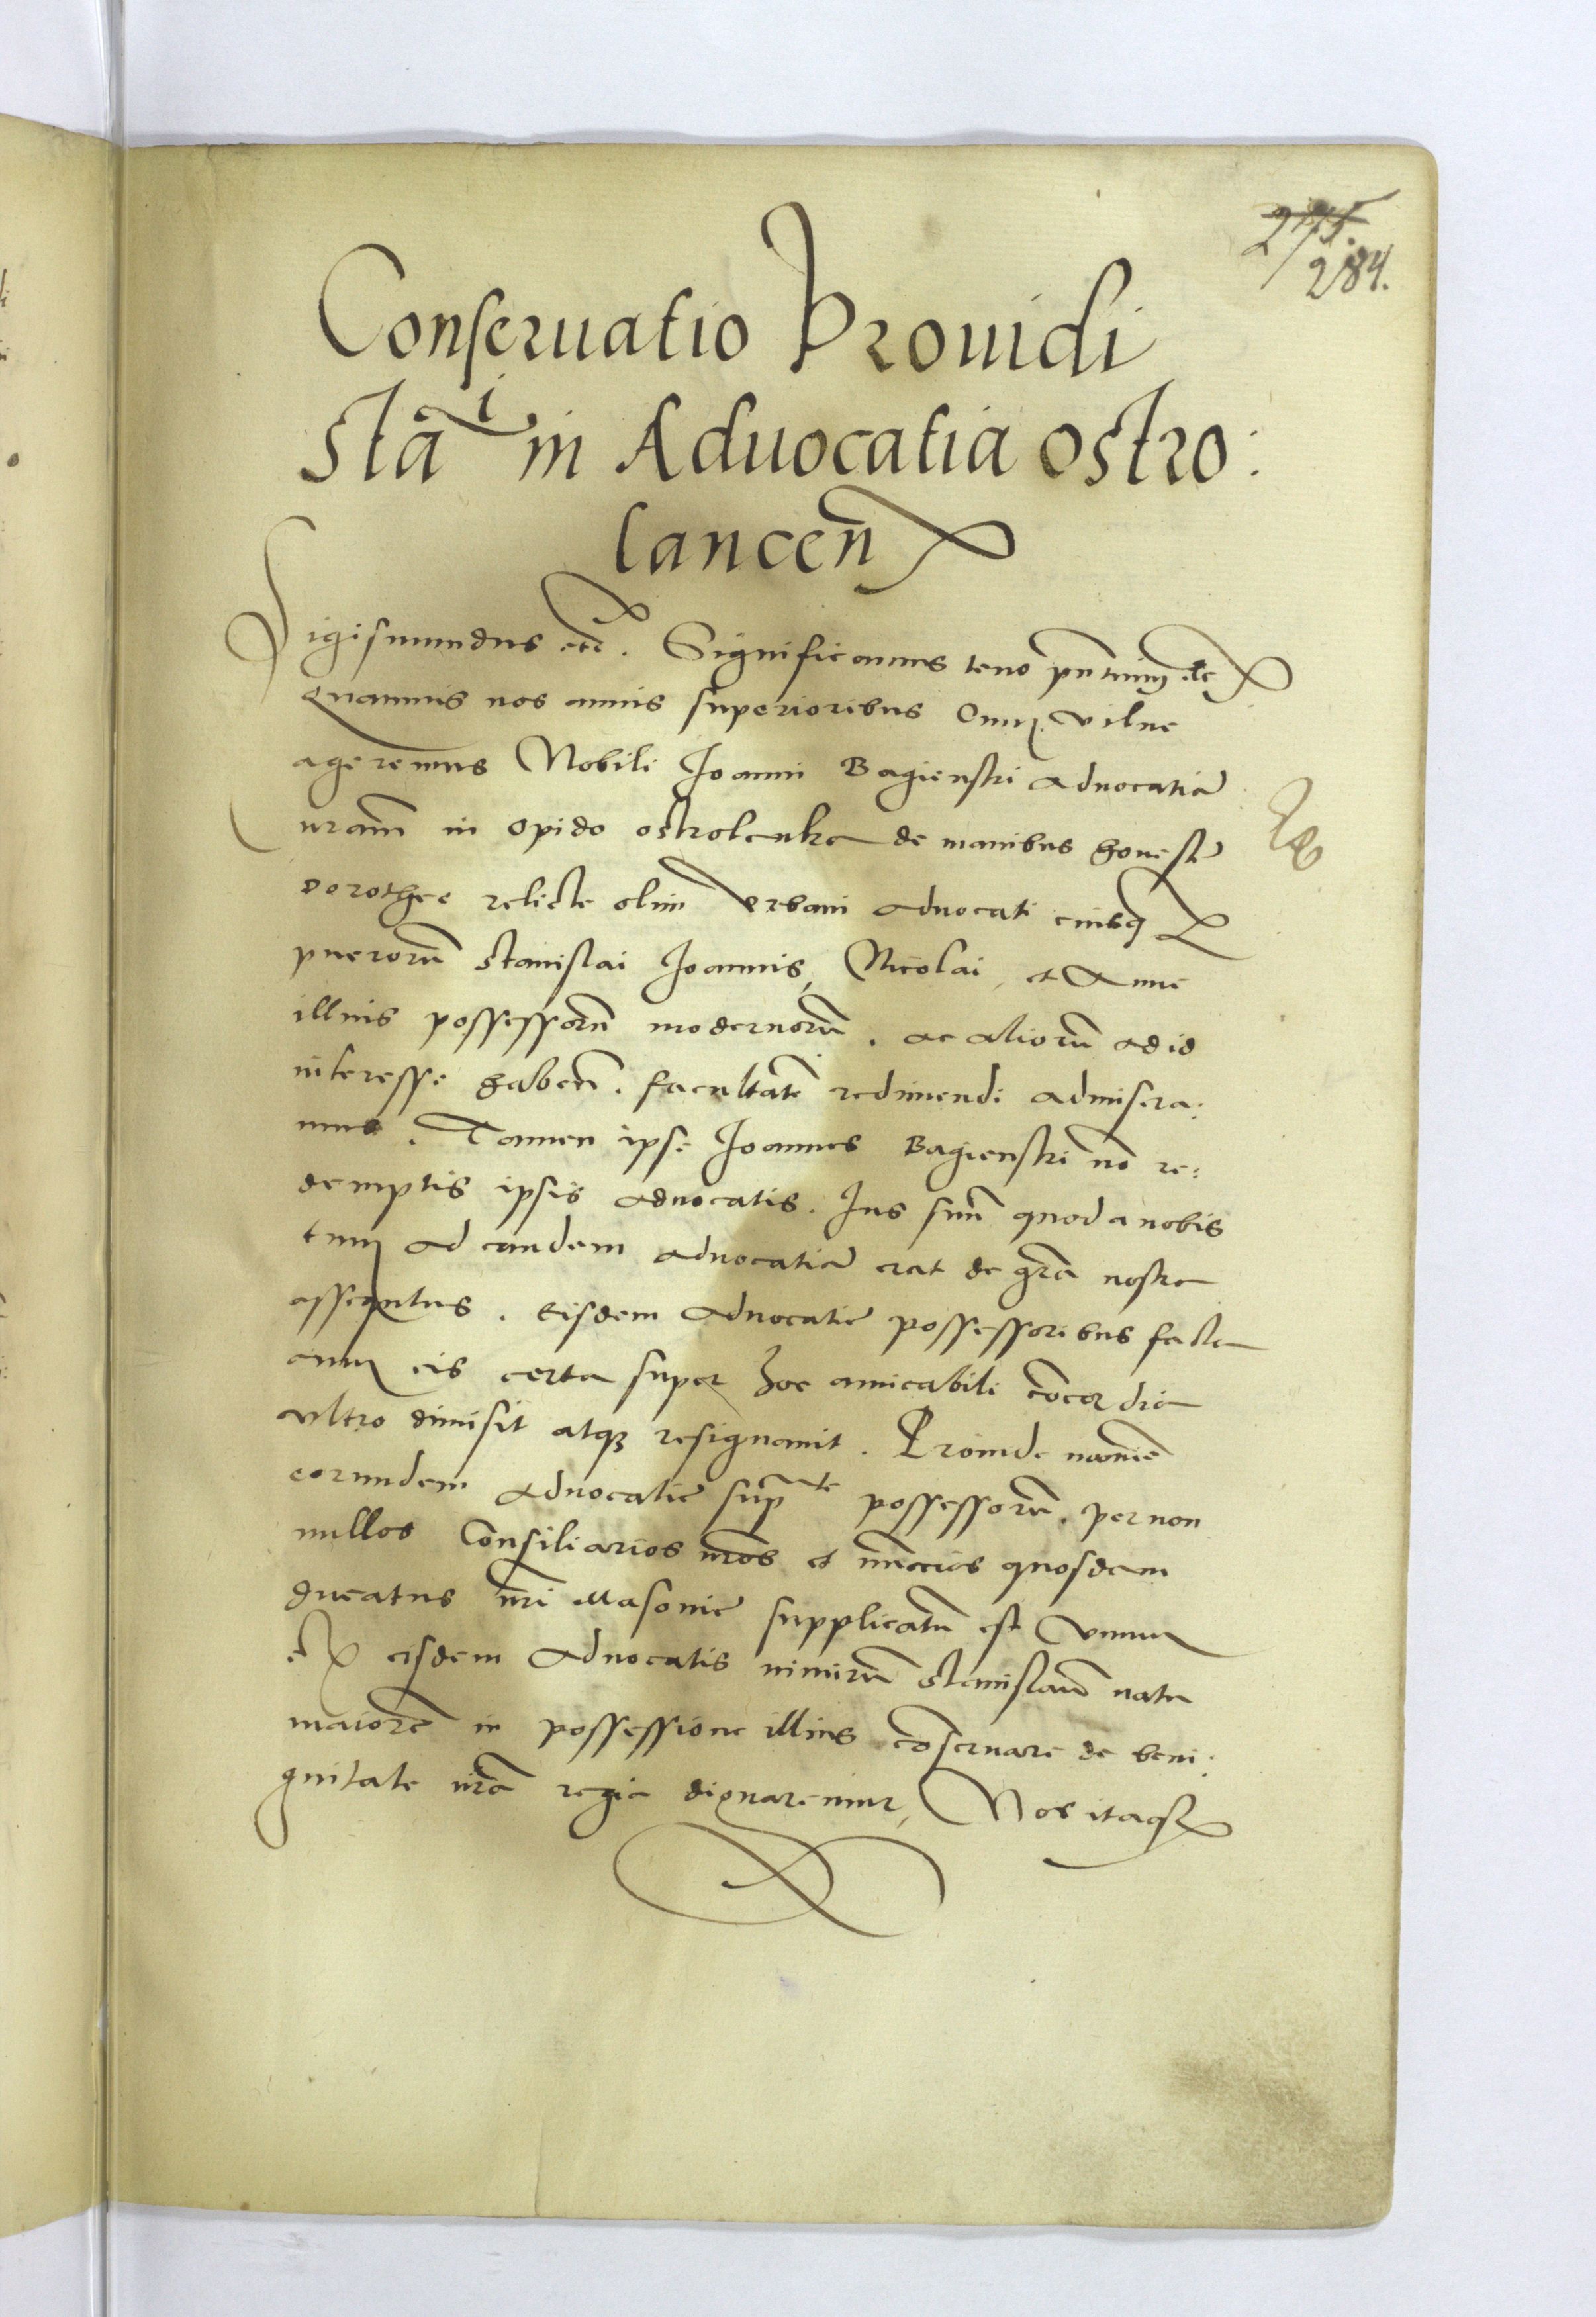 275.
284.
Conseruatio Prouidi
Stãi in Aduocatia ostro:
lancen̄
Sigismundus etc̄. Significamus teno p̄ntium etc
Quamuis nos annis superioribus Cum Vilne
ageremus Nobili Joanni Bagienski aduocatiã
nr̄am in opido ostrolenka de manibus honestẽ
Dorothee relicte olim Vrbani aduocati eiusq̃
puerorũ Stanislai Joannis, Nicolai, et Anne
illius possessorũ modernorũ. ac aliorũ ad id
interesse habeñ. facultatẽ redimendi admisera:
mus. Tamen ipse Joannes Bagienski nõ re:
demptis ipsis aduocatis. Jus suũ quod a nobis
tum ad eandem aduocatiã erat de gr̄a nostra
assequutus. Eisdem aduocatie possessoribus facta
cum eis certa super hoc amicabili cõcordia
vltro dimisit atq3 resignauit. Proinde nomiẽ
eorundem aduocatie sup̄te possessorũ. per non
nullos Consiliarios nr̄os et nũccios quosdam
ducatus nr̄i Masouie supplicatũ est vnum
ex eisdem aduocatis nimirũ Stanislaũ natu
maiorẽ in possessione illius cõseruare de beni:
gnitate nr̄a regia dignaremur, Nos itaq3